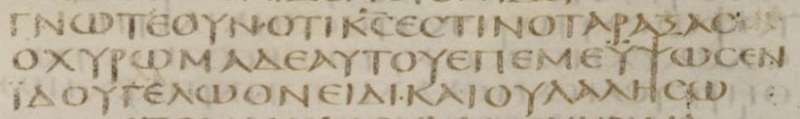 ΓΝΩΤΕΟΥΝ·ΟΤΙΚ̅Ϲ̅ΕϹΤΙΝΟΤΑΡΑΞΑϹ
ΟΧΥΡΩΜΑΔΕΑΥΤΟΥΕΠΕΜΕΫΨΩϹΕΝ
ΪΔΟΥΓΕΛΩΟΝΕΙΔΙ·ΚΑΙΟΥΛΑΛΗϹΩ